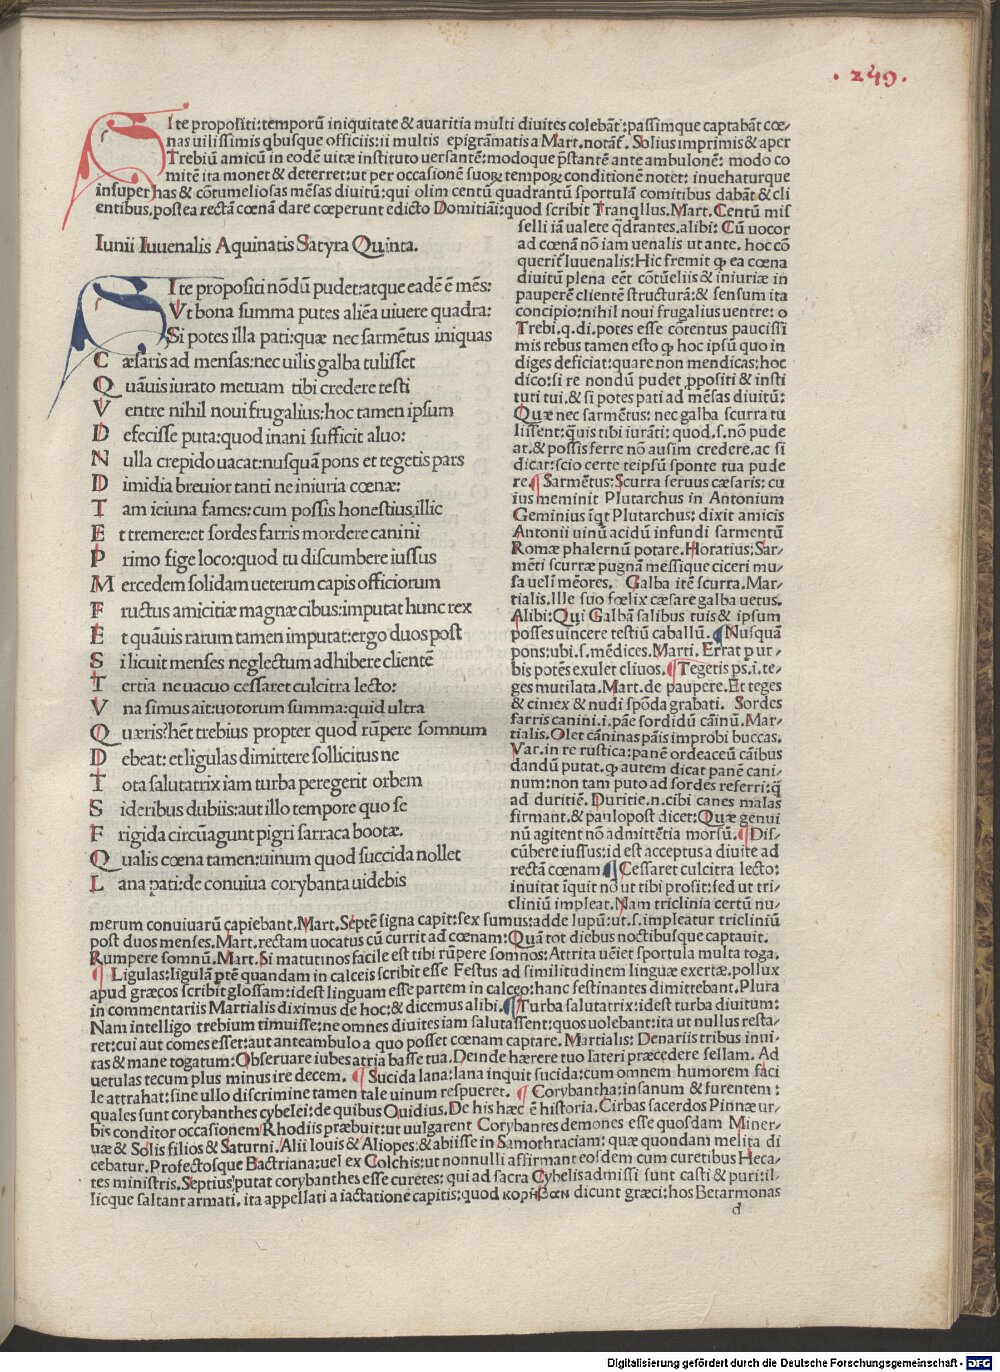 . 249 .
SI te propositi:temporū iniquitate & auaritia multi diuites colebāt᷑:passimque captabāt cœ-
nas uilissimis qbusque officiis:ii multis epigrāmatis a Mart.notāt᷑. Solius imprimis & aper
Trebiū amicū in eodē uitæ instituto uersantē:modoque p̄stantē ante ambulonē: modo co
mitē ita monet & deterret:ut per occasionē suoꝝ tempoꝝ conditionē notet: inuehaturque
insuper has & cōtumeliosas mēsas diuitū:qui olim centū quadrantū sportulā comitibus dabāt & cli
entibus.postea rectā cœnā dare cœperunt edicto Domitiāi:quod scribit Tranqllus.Mart.Centū mis
Iunii Iuuenalis Aquinatis Satyra Quinta.
SI te propositi nōdū pudet:atque eadē ē mēs:
Vt bona summa putes aliēa uiuere quadra:
Si potes illa pati:quæ nec sarmētus iniquas
C æsaris ad mensas:nec uilis galba tulisset
Q uāuis iurato metuam tibi credere testi
V entre nihil noui frugalius:hoc tamen ipsum
D efecisse puta:quod inani sufficit aluo:
N ulla crepido uacat:nusquā pons et tegetis pars
D imidia breuior tanti ne iniuria cœnæ:
T am ieiuna fames:cum possis honestius,illic
E t tremere:et sordes farris mordere canini
P rimo fige loco:quod tu discumbere iussus
M ercedem solidam ueterum capis officiorum
F ructus amicitiæ magnæ cibus:imputat hunc rex
E t quāuis rarum tamen imputat:ergo duos post
S i licuit menses neglectum adhibere clientē
T ertia ne uacuo cessaret culcitra lecto:
V na simus ait:uotorum summa:quid ultra
Q uæris?hēt trebius propter quod rūpere somnum
D ebeat: et ligulas dimittere sollicitus ne
T ota salutatrix iam turba peregerit orbem
S ideribus dubiis:aut illo tempore quo se
F rigida circūagunt pigri sarraca bootæ.
Q ualis cœna tamen:uinum quod succida nollet
L ana pati:de conuiua corybanta uidebis
selli iā ualete qdrantes.alibi: Cū uocor
ad cœnā nō iam uenalis ut ante, hoc cō
querit᷑ Iuuenalis:Hic fremit ꝙ ea cœna
diuitū plena eēt cōtūeliis & iniuriæ in
pauperē clientē structurā:& sensum ita
concipio:nihil noui frugalius uentre: o
Trebi.q.di.potes esse cōtentus paucissi
mis rebus tamen esto ꝙ hoc ipsū quo in
diges deficiat:quare non mendicas:hoc
dico:si re nondū pudet ꝓpositi & insti
tuti tui.& si potes pati ad mēsas diuitū:
Quæ nec sarmētus: nec galba scurra tu
lissent:quis tibi iurāti: quod.s.nō pude
at.& possis ferre nō ausim credere.ac si
dicat:scio certe teipsū sponte tua pude
re.¶ Sarmētus:Scurra seruus cæsaris: cu
ius meminit Plutarchus in Antonium
Geminius īqt Plutarchus: dixit amicis
Antonii uinū acidū infundi sarmentū
Romæ phalernū potare.Horatius:Sar-
mēti scurræ pugnā messique ciceri mu-
sa uelī mēores. Galba itē scurra.Mar-
tialis.Ille suo fœlix cæsare galba uetus.
Alibi:Qui Galbā salibus tuis & ipsum
posses uincere testiū caballū.¶Nusquā
pons:ubi.s.mēdices.Marti. Errat p ur-
bis potēs exulet cliuos.¶Tegetis ps.i.te-
ges mutilata.Mart.de paupere.Et teges
& cimex & nudi spōda grabati. Sordes
farris canini.i.pāe sordidū cāinū.Mar-
tialis.Olet cāninas pāis improbi buccas.
Var.in re rustica:panē ordeaceū cāibus
dandū putat.ꝙ autem dicat panē cani-
num:non tam puto ad sordes referri:q̄
ad duritiē. Duritie.n.cibi canes malas
firmant.& paulopost dicet:Quæ genui
nū agitent nō admittētia morsū.¶Dis-
cūbere iussus:id est acceptus a diuite ad
rectā cœnam¶ Cessaret culcitra lecto:
inuitat īquit nō ut tibi prosit:sed ut tri-
cliniū impleat.Nam triclinia certū nu-
merum conuiuarū capiebant.Mart.Septē signa capit:sex sumus:adde lupū:ut.s.impleatur tricliniū
post duos menses.Mart.rectam uocatus cū currit ad cœnam:Quā tot diebus noctibusque captauit.
Rumpere somnū.Mart.Si matutinos facile est tibi rūpere somnos:Attrita uēiet sportula multa toga.
¶ Ligulas:ligulā ptē quandam in calceis scribit esse Festus ad similitudinem linguæ exertæ.pollux
apud græcos scribit glossam:idest linguam esse partem in calceo:hanc festinantes dimittebant.Plura
in commentariis Martialis diximus de hoc:& dicemus alibi.¶Turba salutatrix:idest turba diuitum:
Nam intelligo trebium timuisse:ne omnes diuites iam salutassent:quos uolebant:ita ut nullus resta-
ret:cui aut comes esset:aut anteambulo a quo posset cœnam captare.Martialis: Denariis tribus inui-
tas & mane togatum:Obseruare iubes atria basse tua.Deinde hærere tuo lateri præcedere sellam. Ad
uetulas tecum plus minus ire decem. ¶ Sucida lana:lana inquit sucida:cum omnem humorem faci
le attrahat:sine ullo discrimine tamen tale uinum respueret. ¶ Corybantha:insanum & furentem:
quales sunt corybanthes cybelei:de quibus Ouidius.De his hæc ē historia.Cirbas sacerdos Pinnæ ur-
bis conditor occasionem Rhodiis præbuit:ut uulgarent Corybantes demones esse quosdam Miner-
uæ & Solis filios & Saturni.Alii Iouis & Aliopes:& abiisse in Samothraciam:quæ quondam melita di
cebatur.Profectosque Bactriana:uel ex Colchis:ut nonnulli affirmant eosdem cum curetibus Heca-
tes ministris.Septius putat corybanthes esse curetes: qui ad sacra Cybelis admissi sunt casti & puri:il-
licque saltant armati. ita appellati a iactatione capitis:quod κοριβαν dicunt græci:hos Betarmonas
d
Digitalisierung gefördert durch die Deutsche Forschungsgemeinschaft - DFG